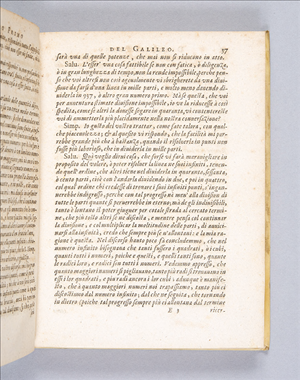 DEL GALILEO. 37
sarà vna di quelle potenze, che mai non si riducano in atto.
Salu. L'esser vna cosa fattibile se non con fatica, ò diligenza,
ò in gran lunghezza di tempo, non la rende impossibile, perche pen-
so che voi altresì non così ageuolmente vi sbrighereste da vna diui-
sione da farsi d'una linea in mille parti, e molto meno douendo di-
uiderla in 937, ò altro gran numero primo. Mà se questa, che voi
per auuentura stimate diuisione impossibile, io ve la riducessi à così
spedita, come se altri la douesse segare in quaranta, vi contentereste
voi di ammetterla più placidamente nella nostra conuersazione?
Simp. Io gusto del vostro trattar, come fate talora, con qual-
che piaceuolezza; & al quesito vi rispondo, che la facilità mi par-
rebbe grande più che à bastanza, quando il risoluerla in punti non
fusse più laborioso, che in diuiderla in mille parti.
Salu. Quì voglio dirui cosa, che forse vi farà marauigliare in
proposito del volere, ò poter risoluer la linea ne' suoi infiniti, tenen-
do quell'ordine, che altri tiene nel diuiderla in quaranta, sessanta,
ò cento parti, cioè con l'andarla diuidendo in due, e poi in quattro,
col qual ordine chi credesse di trouare i suoi infiniti punti, s'ingan-
nerebbe indigrosso, perche con tal progresso nè men' alla diuision di
tutte le parti quante si peruerrebbe in eterno; mà de gli indiuisibili,
tanto è lontano il poter giugner per cotale strada al cercato termi-
ne, che più tosto altri se ne discosta, e mentre pensa col continuar
la diuisione, e col multiplicar la moltitudine delle parti, di auuici-
narsi alla infinità, credo che sempre più se n'allontani: e la mia ra-
gione è questa. Nel discorso hauto poco fà concludemmo, che nel
numero infinito bisognaua che tanti fussero i quadrati, ò i cubi,
quanti tutti i numeri, poiche e questi, e quelli tanti sono, quante
le radici loro, e radici son tutti i numeri. Vedemmo appresso, che
quanto maggiori numeri si pigliauano, tanto più radi si trouauano in
essi i lor quadrati, e più radi ancora i lor cubi: adunque è manife-
sto, che à quanto maggiori numeri noi trapassiamo, tanto più ci
discostiamo dal numero infinito; dal che ne seguita, che tornando
in dietro (poiche tal progresso sempre più ci allontana dal termine
E 3 ricer-